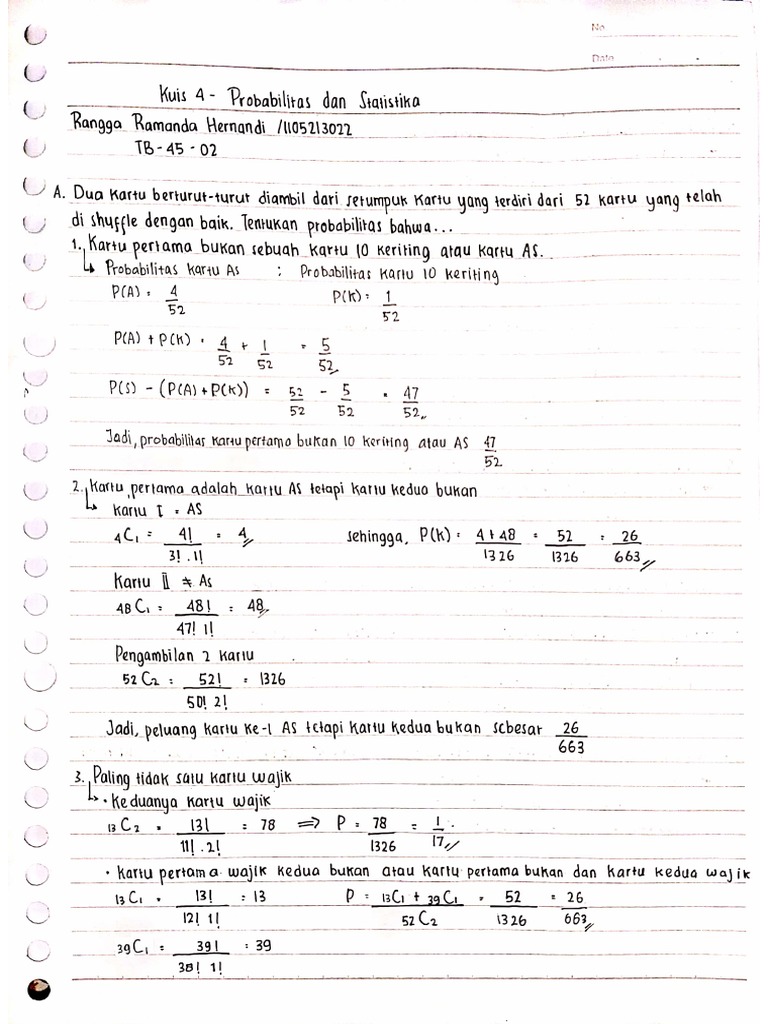 No
Date
Kuis 4 - Probabilitas dan Statistika
Rangga Ramanda Hernandi /1105213022
TB-45-02
A. Dua kartu berturut-turut diambil dari setumpuk kartu yang terdiri dari 52 kartu yang telah
di shuffle dengan baik. Tentukan probabilitas bahwa...
1. Kartu pertama bukan sebuah kartu 10 keriting atau kartu AS.
↳ Probabilitas kartu As : Probabilitas kartu 10 keriting
P(A) = 4/52 P(K) = 1/52
P(A) + P(K) = 4/52 + 1/52 = 5/52
P(S) - (P(A) + P(K)) = 52/52 - 5/52 = 47/52
Jadi, probabilitas kartu pertama bukan 10 keriting atau AS 47/52
2. Kartu pertama adalah kartu AS tetapi kartu kedua bukan
↳ Kartu I = AS
4C1 = 4!/3! . 1! = 4 sehingga, P(K) = 4+48/1326 = 52/1326 = 26/663
Kartu II ≠ As
48C1 = 48!/47! 1! = 48
Pengambilan 2 kartu
52C2 = 52!/50! 2! = 1326
Jadi, peluang kartu ke-1 AS tetapi kartu kedua bukan sebesar 26/663
3. Paling tidak satu kartu wajik
↳ • Keduanya kartu wajik
13C2 = 13!/11! . 2! = 78 ⇒ P = 78/1326 = 1/17
• Kartu pertama wajik kedua bukan atau kartu pertama bukan dan kartu kedua wajik
13C1 = 13!/12! 1! = 13 P = 13C1 + 39C1/52C2 = 52/1326 = 26/663
39C1 = 39!/38! 1! = 39